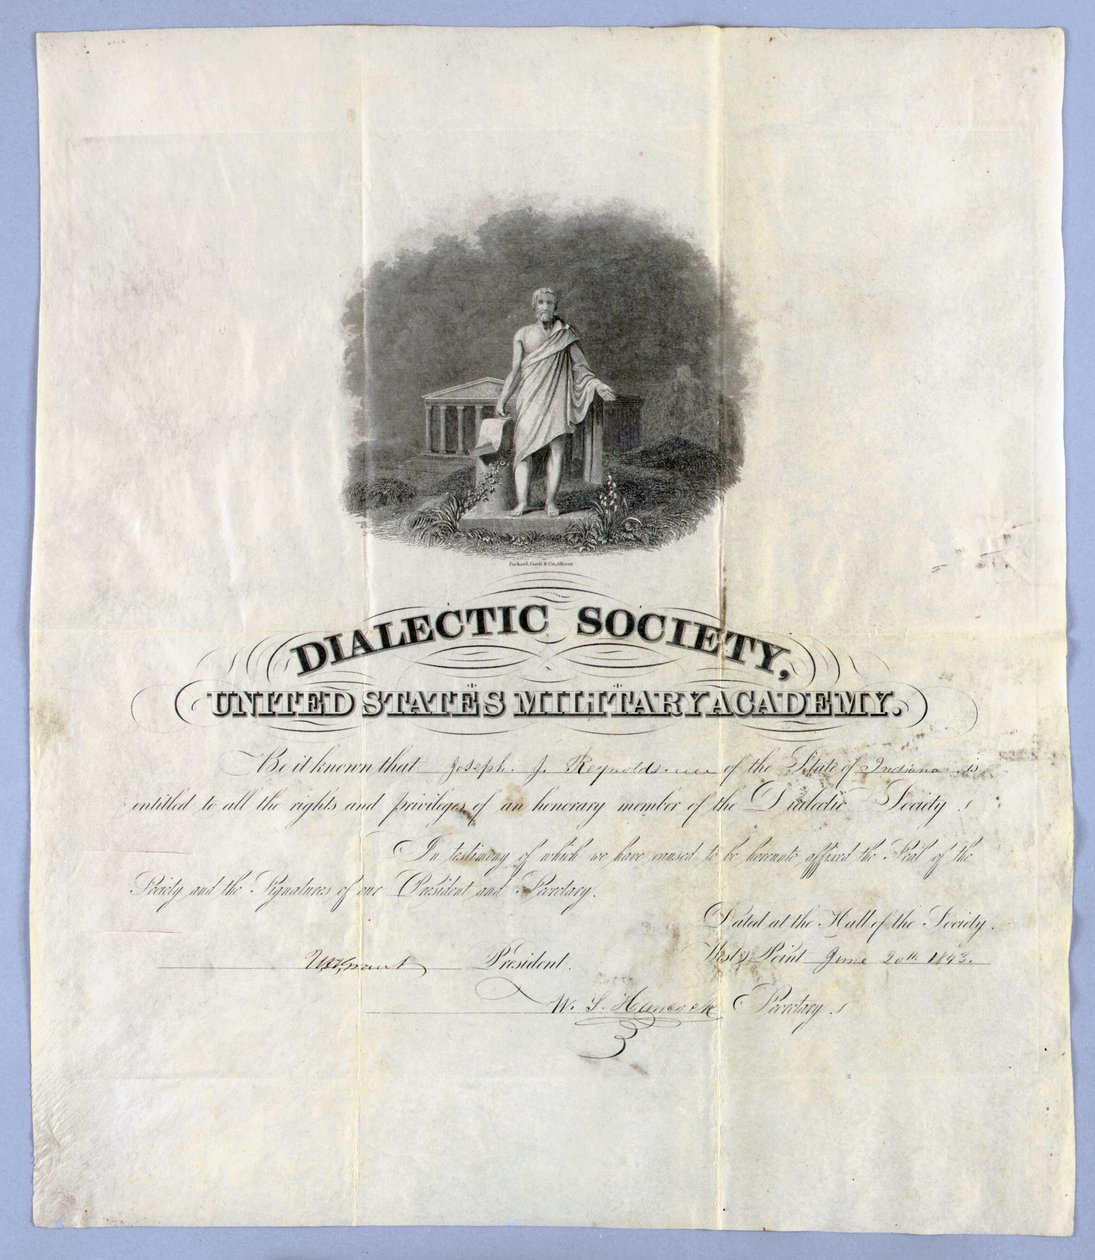 Packard, Cush & Co., Albany
DIALECTIC SOCIETY,
UNITED STATES MILITARY ACADEMY.
Be it known that Joseph. J. Reynolds of the State of Indiana is
entitled to all the rights and privileges of an honorary member of the Dialectic Society
In testimony of which we have caused to be hereunto affixed the Seal of the
Society and the Signatures of our President and Secretary.
Dated at the Hall of the Society.
West Point June 20th 1843.
U.H. Grant President.
W. S. Hancock Secretary